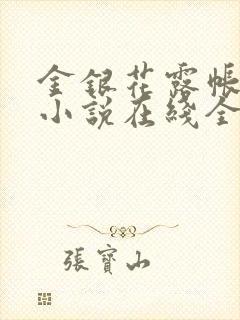 金銀花露帳
小說在綫全
張寶山